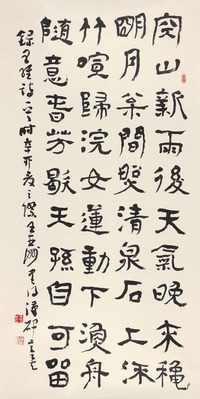 空山新雨後天氣晚来穐
朙月枀間照清泉石上流
竹喧歸浣女蓮動下漁舟
隨意春芳歇王孫自可畱
錄王維詩一首时辛卯之際王